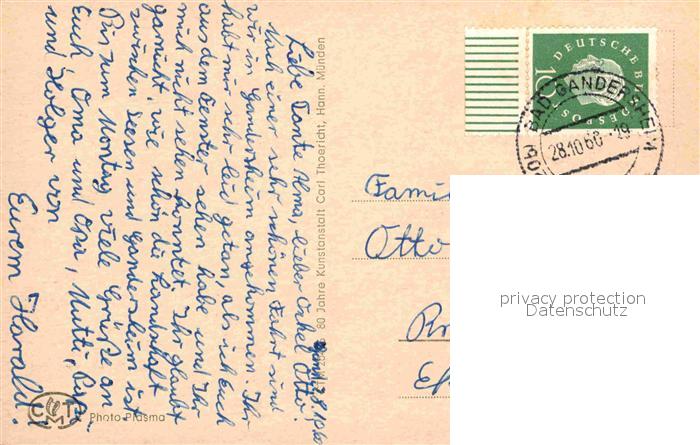 Gand. 28.10.60
Liebe Tante Alma, lieber Onkel Otto!
Nach einer sehr schönen Fahrt sind
wir in Gandersheim angekommen. Ihr
habt mir sehr leid getan, als ich Euch
aus dem Fenster sehen habe und Ihr
mich nicht sehen konntet. Ihr glaubt
garnicht, wie schön die Landschaft
zwischen Seesen und Gandersheim ist.
Bis zum Montag viele Grüße an
Euch, Oma und Opa, Mutti, Papa
und Holger von
Eurem Harald.
80 Jahre Kunstanstalt Carl Thoericht, Hann. Münden
CTM
Photo-Plasma
DEUTSCHE BUNDESPOST
10
BAD GANDERSHEIM
28.10.60-19
Fami
Otto
privacy protection
Datenschutz